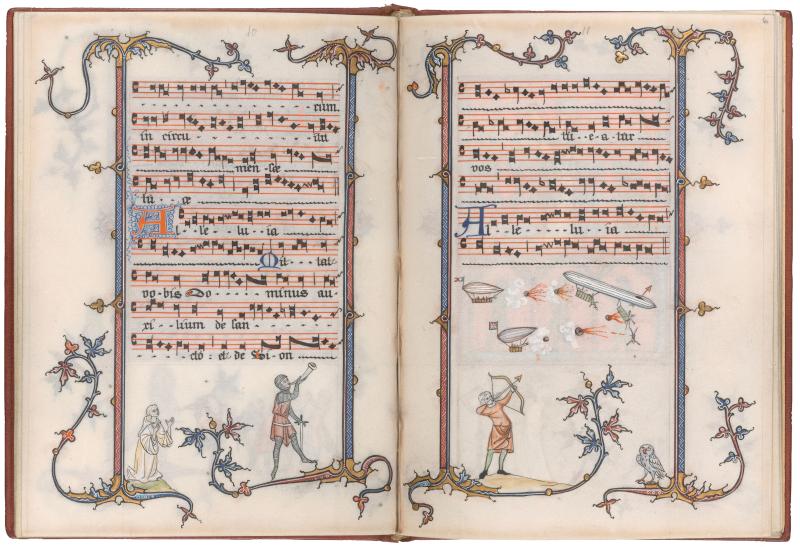 10
rum
in circu - - - itu
men - sæ
tu - - æ
Al - - le - lu - - ia
Mit - tat
vo - bis Do - - - minus au
xi - - lium de san
cto : et de Sion
11
6
tu - - e - a - tur
vos
Al - - le - - - lu - - ia
XI